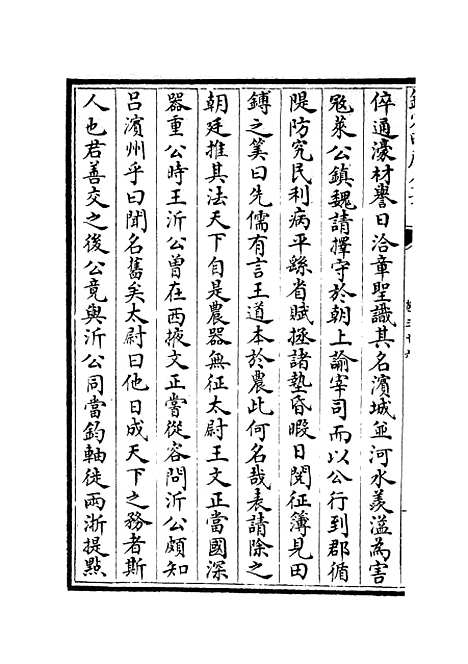 倅通濠材譽日洽章聖識其名濱城並河水羨溢為害
冦萊公鎮魏請擇守於朝上諭宰司而以公行到郡循
隄防究民利病平繇省賦拯諸墊昏暇日閱征簿見田
鎛之筭曰先儒有言王道本於農此何名哉表請除之
朝廷推其法天下自是農器無征太尉王文正當國深
器重公時王沂公曽在西掖文正嘗從容問沂公頗知
吕濱州乎曰聞名舊矣太尉曰他日成天下之務者斯
人也君善交之後公竟與沂公同當鈞軸徙兩浙提點